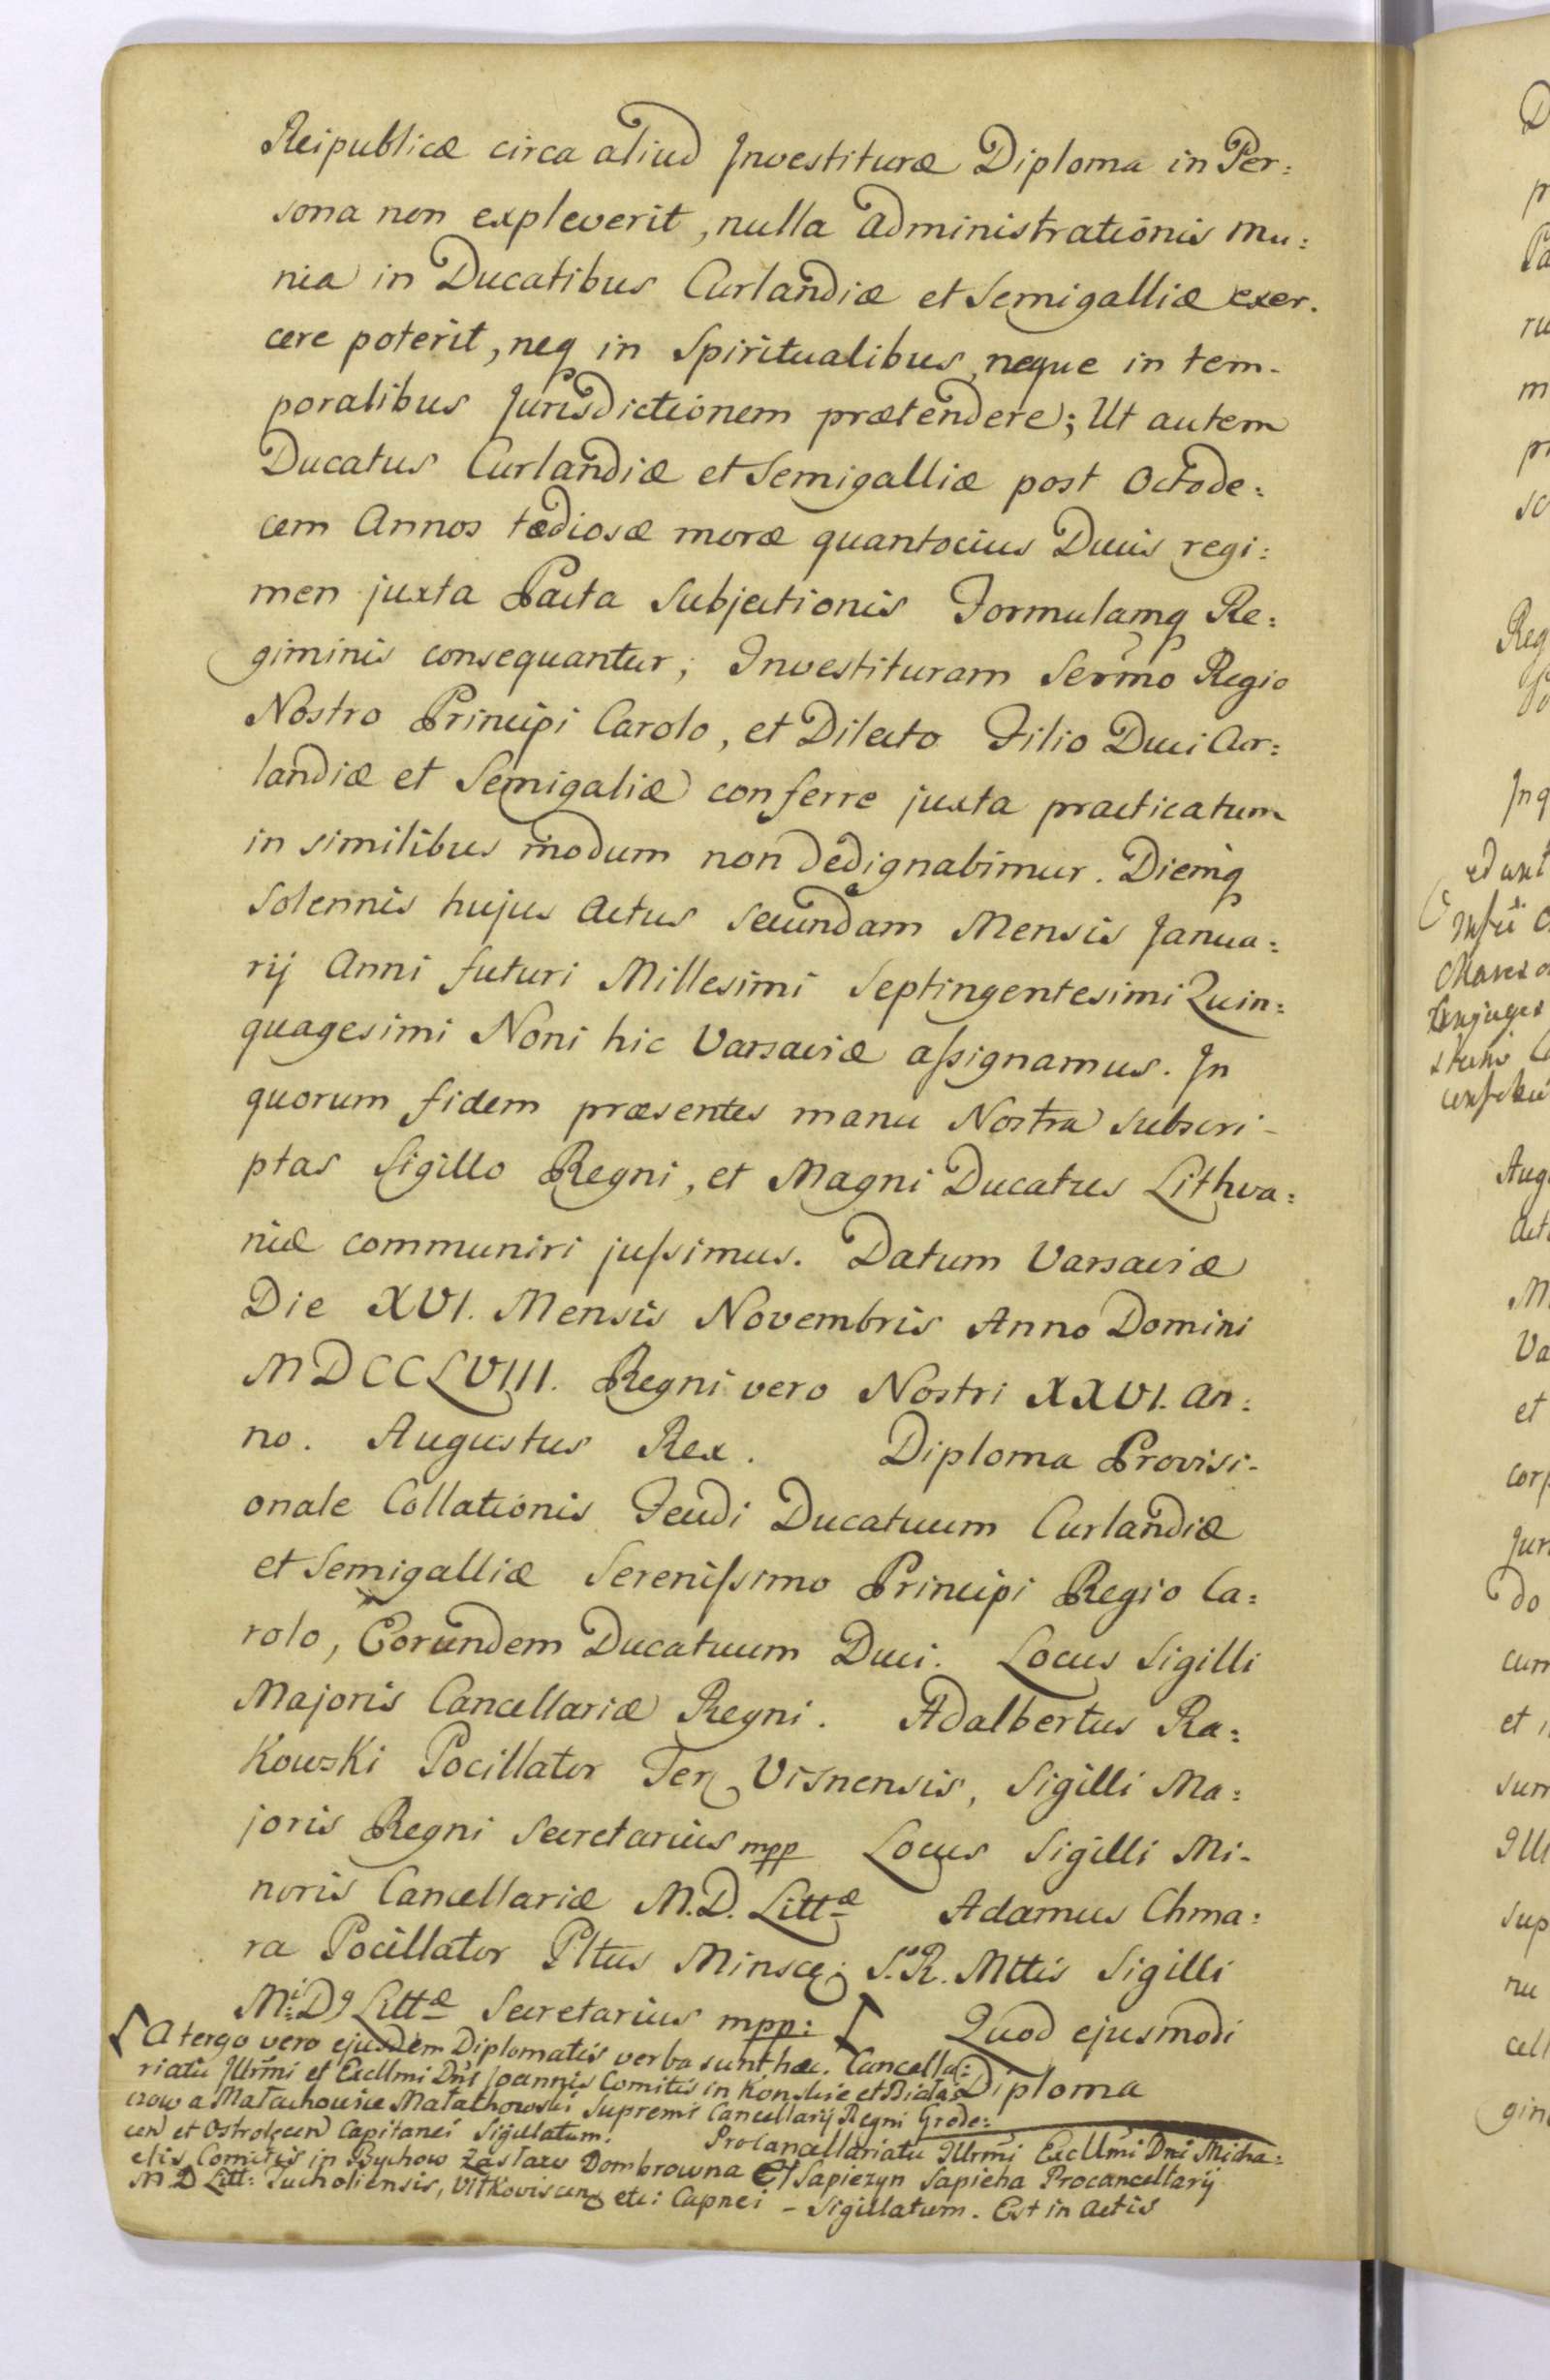 Reipublicæ circa aliud Investituræ Diploma in Per:
sona non expleverit, nulla administrationis mu:
nia in Ducatibus Curlandiæ et Semigalliæ exer.
cere poterit, neq in Spiritualibus, neque in tem-
poralibus Jurisdictionem prætendere; Ut autem
Ducatus Curlandiæ et Semigalliæ post Octode:
cem Annos tædiosæ moræ quantocius Ducis regi:
men juxta Pacta Subjectionis Formulamq Re:
giminis consequantur; Investituram Sermo Regio
Nostro Principi Carolo, et Dilecto Filio Duci Cur:
landiæ et Semigaliæ conferre juxta practicatum
in similibus modum non dedignabimur. Diemq
Solennis hujus Actus secundam Mensis Janua:
rij Anni futuri Millesimi Septingentesimi Quin:
quagesimi Noni hic Varsaviæ aſsignamus. In
quorum fidem præsentes manu Nostra subscri-
ptas Sigillo Regni, et Magni Ducatus Lithva:
niæ communiri juſsimus. Datum Varsaviæ
Die XVI. Mensis Novembris Anno Domini
MDCCLVIII. Regni vero Nostri XXVI. An:
no. Augustus Rex. Diploma Provisi-
onale Collationis Feudi Ducatuum Curlandiæ
et Semigalliæ Sereniſsimo Principi Regio Ca:
rolo, Eorundem Ducatuum Duci. Locus Sigilli
Majoris Cancellariæ Regni. Adalbertus Ra:
Kowski Pocillator Ter Visnensis, Sigilli Ma:
joris Regni Secretarius mpp Locus Sigilli Mi-
noris Cancellariæ M.D. Littæ Adamus Chma:
ra Pocillator Pltus Minsc: S. R. Mttis Sigilli
Mi: D9 Littæ Secretarius mpp: Quod ejusmodi
Diploma
A tergo vero ejusdem Diplomatis verba sunt hæc. Cancella:
riatu Illrmi et Excllmi Dni Joannis Comitis in Konskie et Biała
czow a Małachowice Małachowski Supremi Cancellarij Regni Grode:
cen et Ostrolecen Capitanei Sigillatum. Procancellariatu Illrmi Excllmi Dni Micha:
elis Comitis in Bychow Zasław Dombrowna et Sapiezyn Sapieha Procancellarij
M D Litt: Tucholiensis, Vitkoviscen etc: Capnei - Sigillatum. Est in Actis